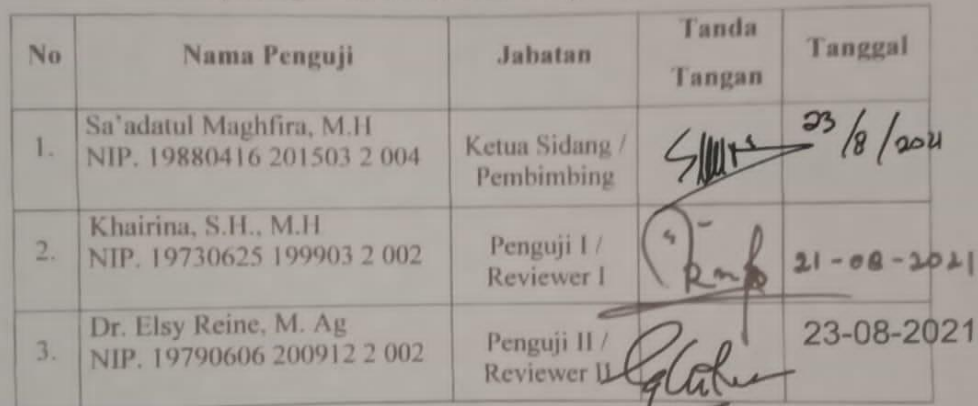 No Nama Penguji Jabatan Tanda Tangan Tanggal
1. Sa'adatul Maghfira, M.H
NIP. 19880416 201503 2 004
Ketua Sidang /
Pembimbing
23/8/2021
2. Khairina, S.H., M.H
NIP. 19730625 199903 2 002
Penguji I /
Reviewer I
21-08-2021
3. Dr. Elsy Reine, M. Ag
NIP. 19790606 200912 2 002
Penguji II /
Reviewer II
23-08-2021